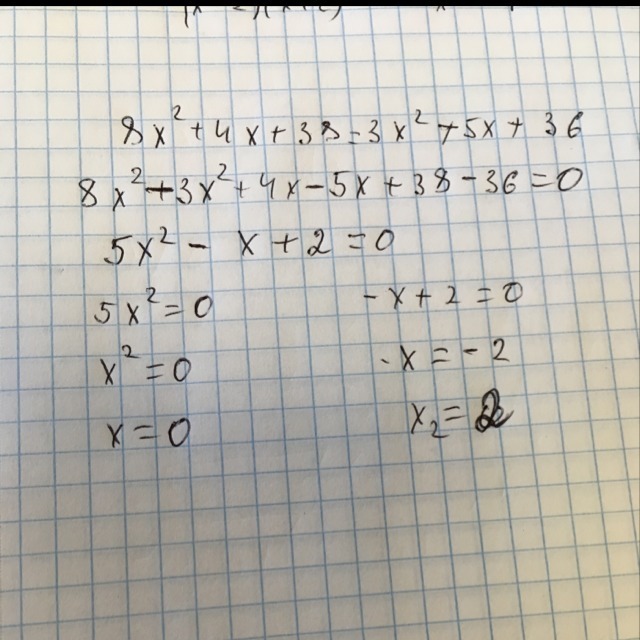 8x² + 4x + 38 = 3x² + 5x + 36
8x² - 3x² + 4x - 5x + 38 - 36 = 0
5x² - x + 2 = 0
5x² = 0 -x + 2 = 0
x² = 0 -x = -2
x = 0 x₂ = 2